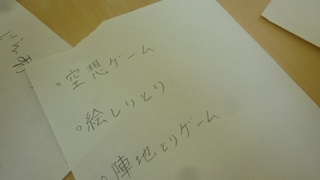 。空想ゲーム
。絵しりとり
。陣地とりゲーム